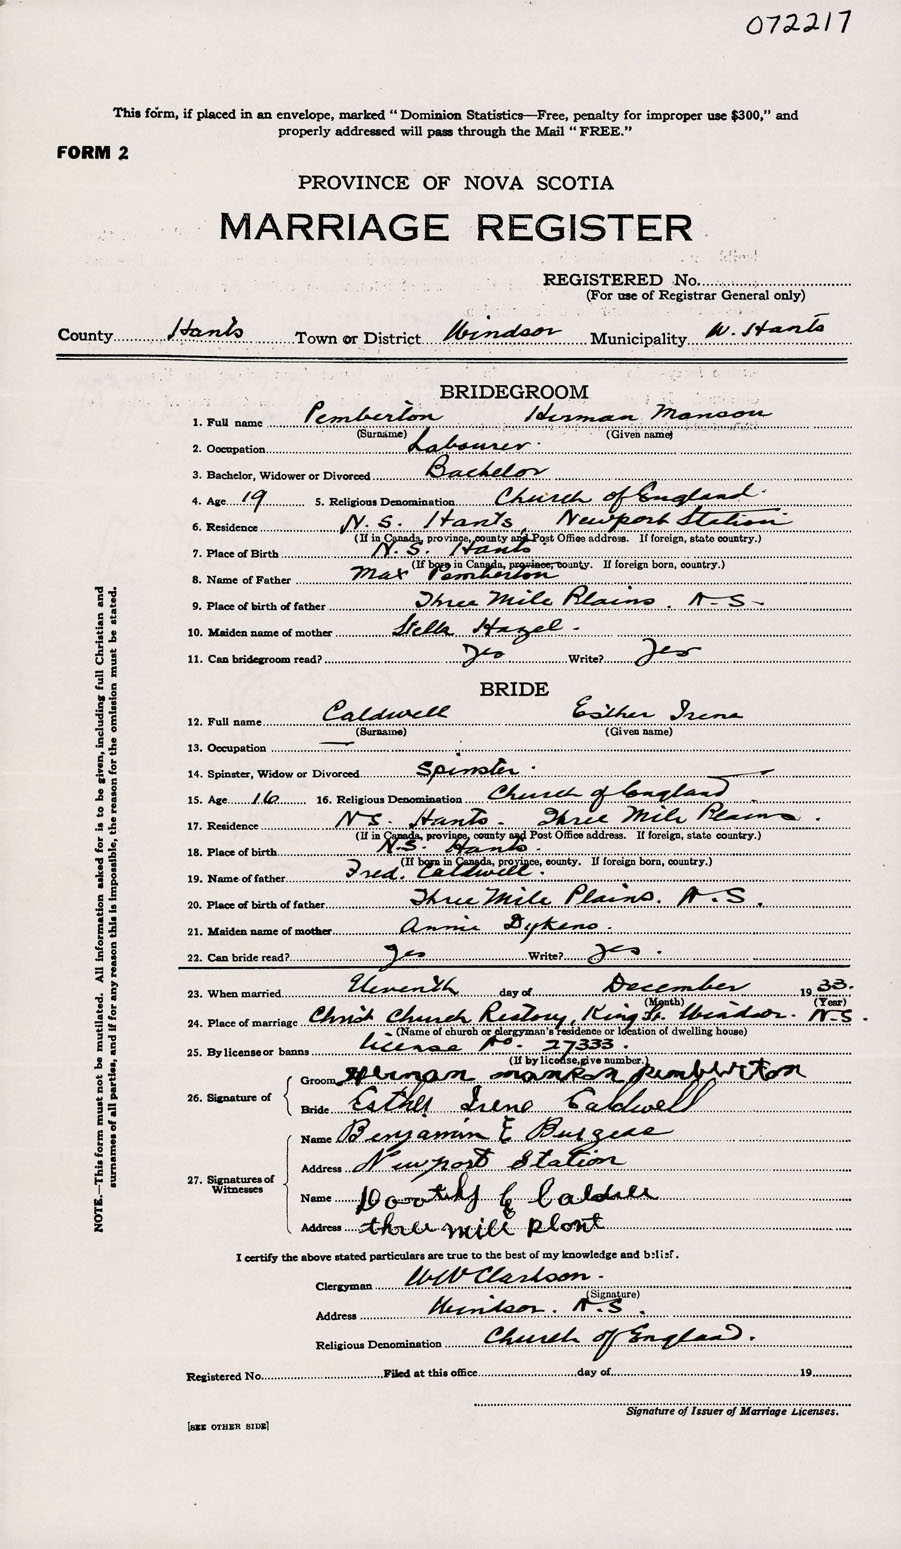 072217
This form, if placed in an envelope, marked "Dominion Statistics—Free, penalty for improper use $300," and
properly addressed will pass through the Mail "FREE."
FORM 2
PROVINCE OF NOVA SCOTIA
MARRIAGE REGISTER
REGISTERED No.
(For use of Registrar General only)
County Hants Town or District Windsor Municipality W. Hants
BRIDEGROOM
1. Full name Pemberton Herman Manson
(Surname) (Given name)
2. Occupation Labourer.
3. Bachelor, Widower or Divorced Bachelor
4. Age 19 5. Religious Denomination Church of England.
6. Residence N. S. Hants, Newport Station
(If in Canada, province, county and Post Office address. If foreign, state country.)
7. Place of Birth N. S. Hants
(If born in Canada, province, county. If foreign born, country.)
8. Name of Father Max Pemberton
9. Place of birth of father Three Mile Plains. N-S-
10. Maiden name of mother Stella Hazel -
11. Can bridegroom read? Yes Write? Yes
BRIDE
12. Full name Caldwell Esther Irene
(Surname) (Given name)
13. Occupation —
14. Spinster, Widow or Divorced Spinster.
15. Age 16 16. Religious Denomination Church of England
17. Residence N S. Hants. Three Mile Plains.
(If in Canada, province, county and Post Office address. If foreign, state country.)
18. Place of birth N.S. Hants.
(If born in Canada, province, county. If foreign born, country.)
19. Name of father Fred. Caldwell.
20. Place of birth of father Three Mile Plains. N.S.
21. Maiden name of mother Annie Dykens.
22. Can bride read? Yes Write? Yes.
23. When married Eleventh day of December 19 33.
(Month) (Year)
24. Place of marriage Christ Church Rectory, King St. Windsor. N.S.
(Name of church or clergyman's residence or location of dwelling house)
25. By license or banns License No. 27333.
(If by license, give number.)
26. Signature of
Groom Herman manson pemberton
Bride Esther Irene Caldwell
27. Signatures of Witnesses
Name Benjamin E Burgess
Address Newport Station
Name
Address three mile plont
I certify the above stated particulars are true to the best of my knowledge and belief.
Clergyman W W Clarkson.
(Signature)
Address Windsor. N.S.
Religious Denomination Church of England.
Registered No. Filed at this office day of 19
Signature of Issuer of Marriage Licenses.
[SEE OTHER SIDE]
NOTE.—This form must not be mutilated. All information asked for is to be given, including full Christian and
surnames of all parties, and if for any reason this is impossible, the reason for the omission must be stated.